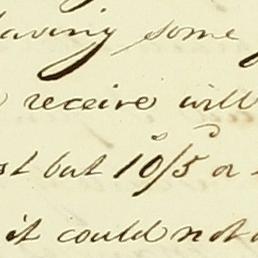 having some
receive will
but 10/5 or
it could not